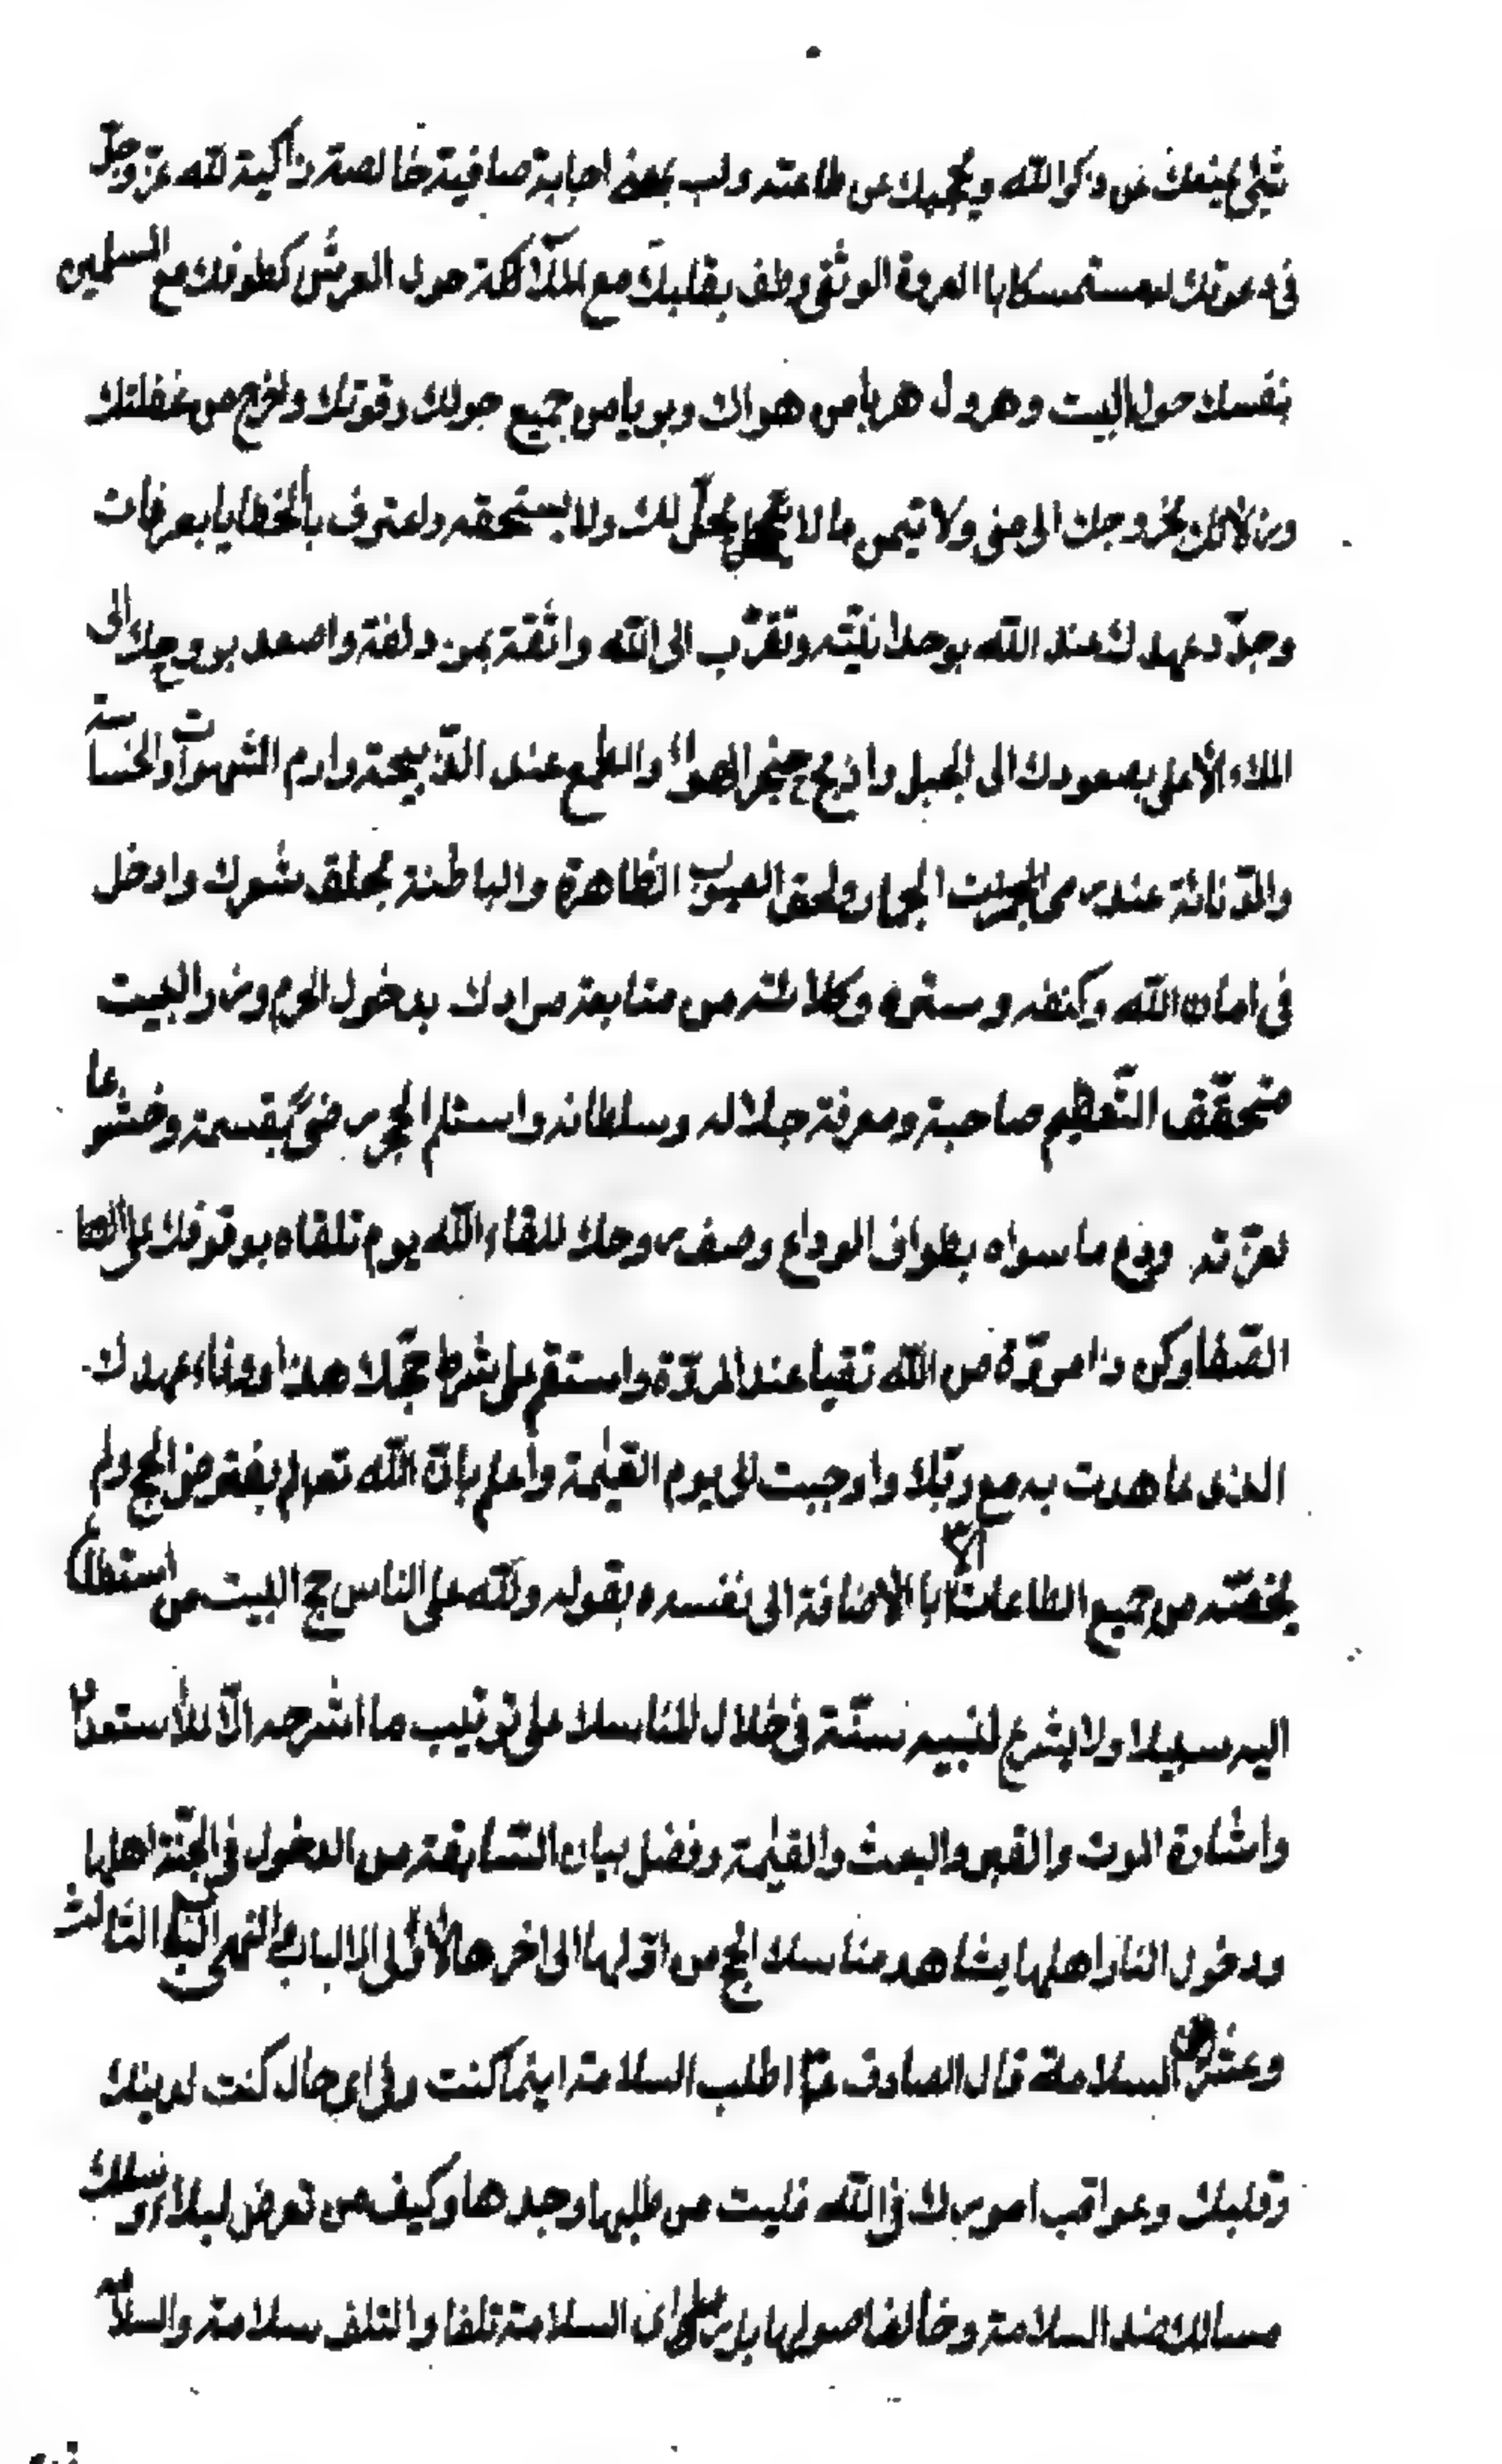 شئ يمنعك عن ذكر الله ويحجبك عن طاعته ولب بمعنى اجابة صافية خالصة زاكية لله عز وجلّ
فى دعوتك له مستمسكا باالعروة الوثقى وطف بقلبك مع الملآئكة حول العرش كطوفك مع المسلمين
بنفسك حول البيت وهرول هربا من هواك وبريا من جميع حولك وقوتك واخرج من غفلتك
وزلاتك بخروجك الى منى ولا تتمن ما لا يحلّ لك ولا يستحقه واعترف بالخطايا بعرفات
وجدّد عهدك عند الله بوحدانيّته وتقرّب الى الله واثقة بمزدلفة واصعد بروحك الى
الملاء الأعلى بصعودك الى الجبل واذبح حنجر الهواء والطمع عند الذّبيحة وارم الشهوات والخساسة
والدّنائة عند رمى الجمرات واحلق العيوب الظاهرة والباطنة بحلق شعرك وادخل
فى امان الله وكنفه وستره وكلائته من متابعة مرادك بدخول الحرم وزر البيت
متحقّقا لتّعظيم صاحبه ومعرفة جلاله وسلطانه واستلم الحجر رضىً بقسمة وخشوعا
لعزّته ودع ما سواه بطواف الوداع وصف روحك للقاء الله يوم تلقاه بوقوفك على
الصّفا وكن ذا مروّة من الله تقيا عند المروّة واستقم على شرط حجّك هذا ووفاء عهدك
الذى عاهدت به مع ربّك واوجبت الى يوم القيٰمة واعلم بانّ الله تع لم يفترض الحج ولم
يخصّه من جميع الطاعات الاّ با الاضافة الى نفسه بقوله ولله على الناس حج البيت من استطاع
اليه سبيلا ولا يشرع لنبيه سنّة فى خلال المناسك على ترتيب ما اشرحه الاّ للأستعداد
واشارة الموت والقبر والبعث والقيٰمة وفضل بيان السّابقة من الدخول فى الجنّة اهلها
ودخول النار اهلها بمشاهد مناسك الحج من اوّلها الى اخرها لأولى الالباب والنهى الباب الثالث
وعشر السلامة قال الصادق ع اطلب السلامة اينما كنت وفى اى حال كنت لدينك
وقلبك وعواقب امورك فى الله فليت من طلبها وجدها وكيف من تعرض لبلاء وسلك
مسالك ضد السلامة وخالف اصولها بل راى السلامة تلفا والتلف سلامة والسلامة